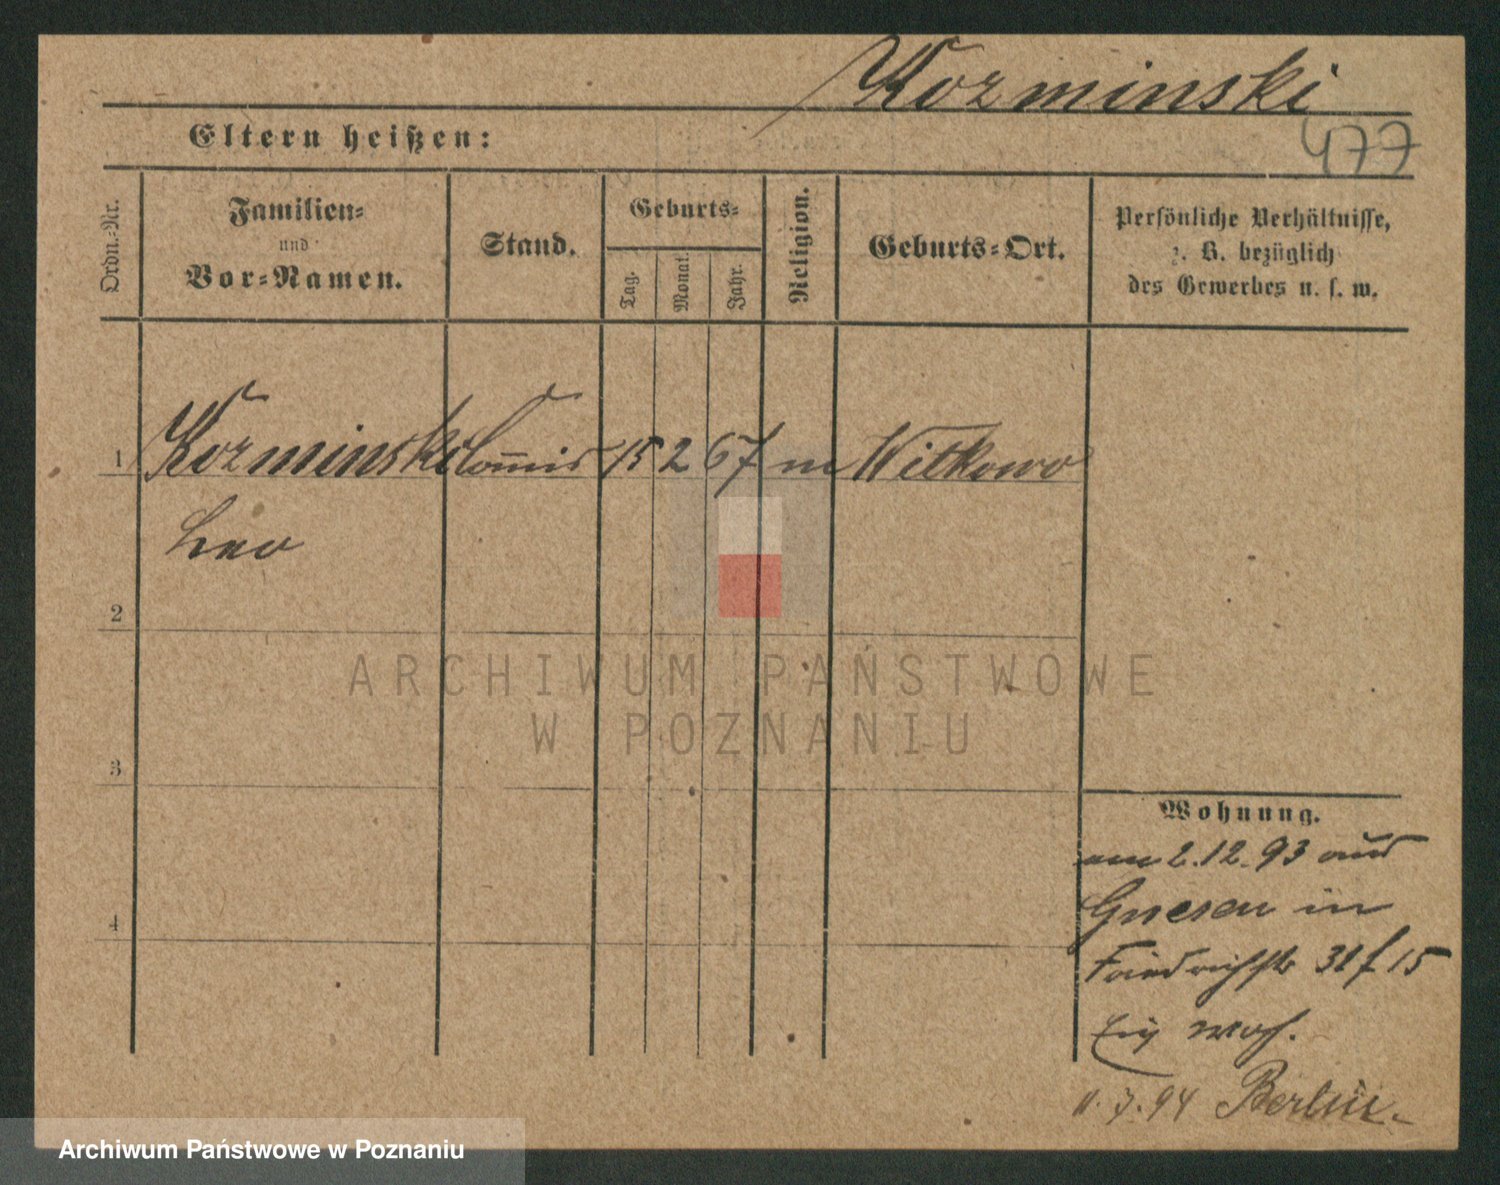 Kozminski
477
Eltern heißen:
Ordn.-Nr.
Familien-
und
Vor-Namen.
Stand.
Geburts-
Tag.
Monat.
Jahr.
Religion.
Geburts-Ort.
Persönliche Verhältnisse,
z. B. bezüglich
des Gewerbes u. s. w.
1 Kozminski Com̅is 15 2 67 m Witkowo
Leo
2
3
4
Wohnung.
am 2.12.93 aus
Gnesen in
Friedrichstr 31 f 15
11.7.94 Berlin.
ARCHIWUM PAŃSTWOWE
W POZNANIU
Archiwum Państwowe w Poznaniu